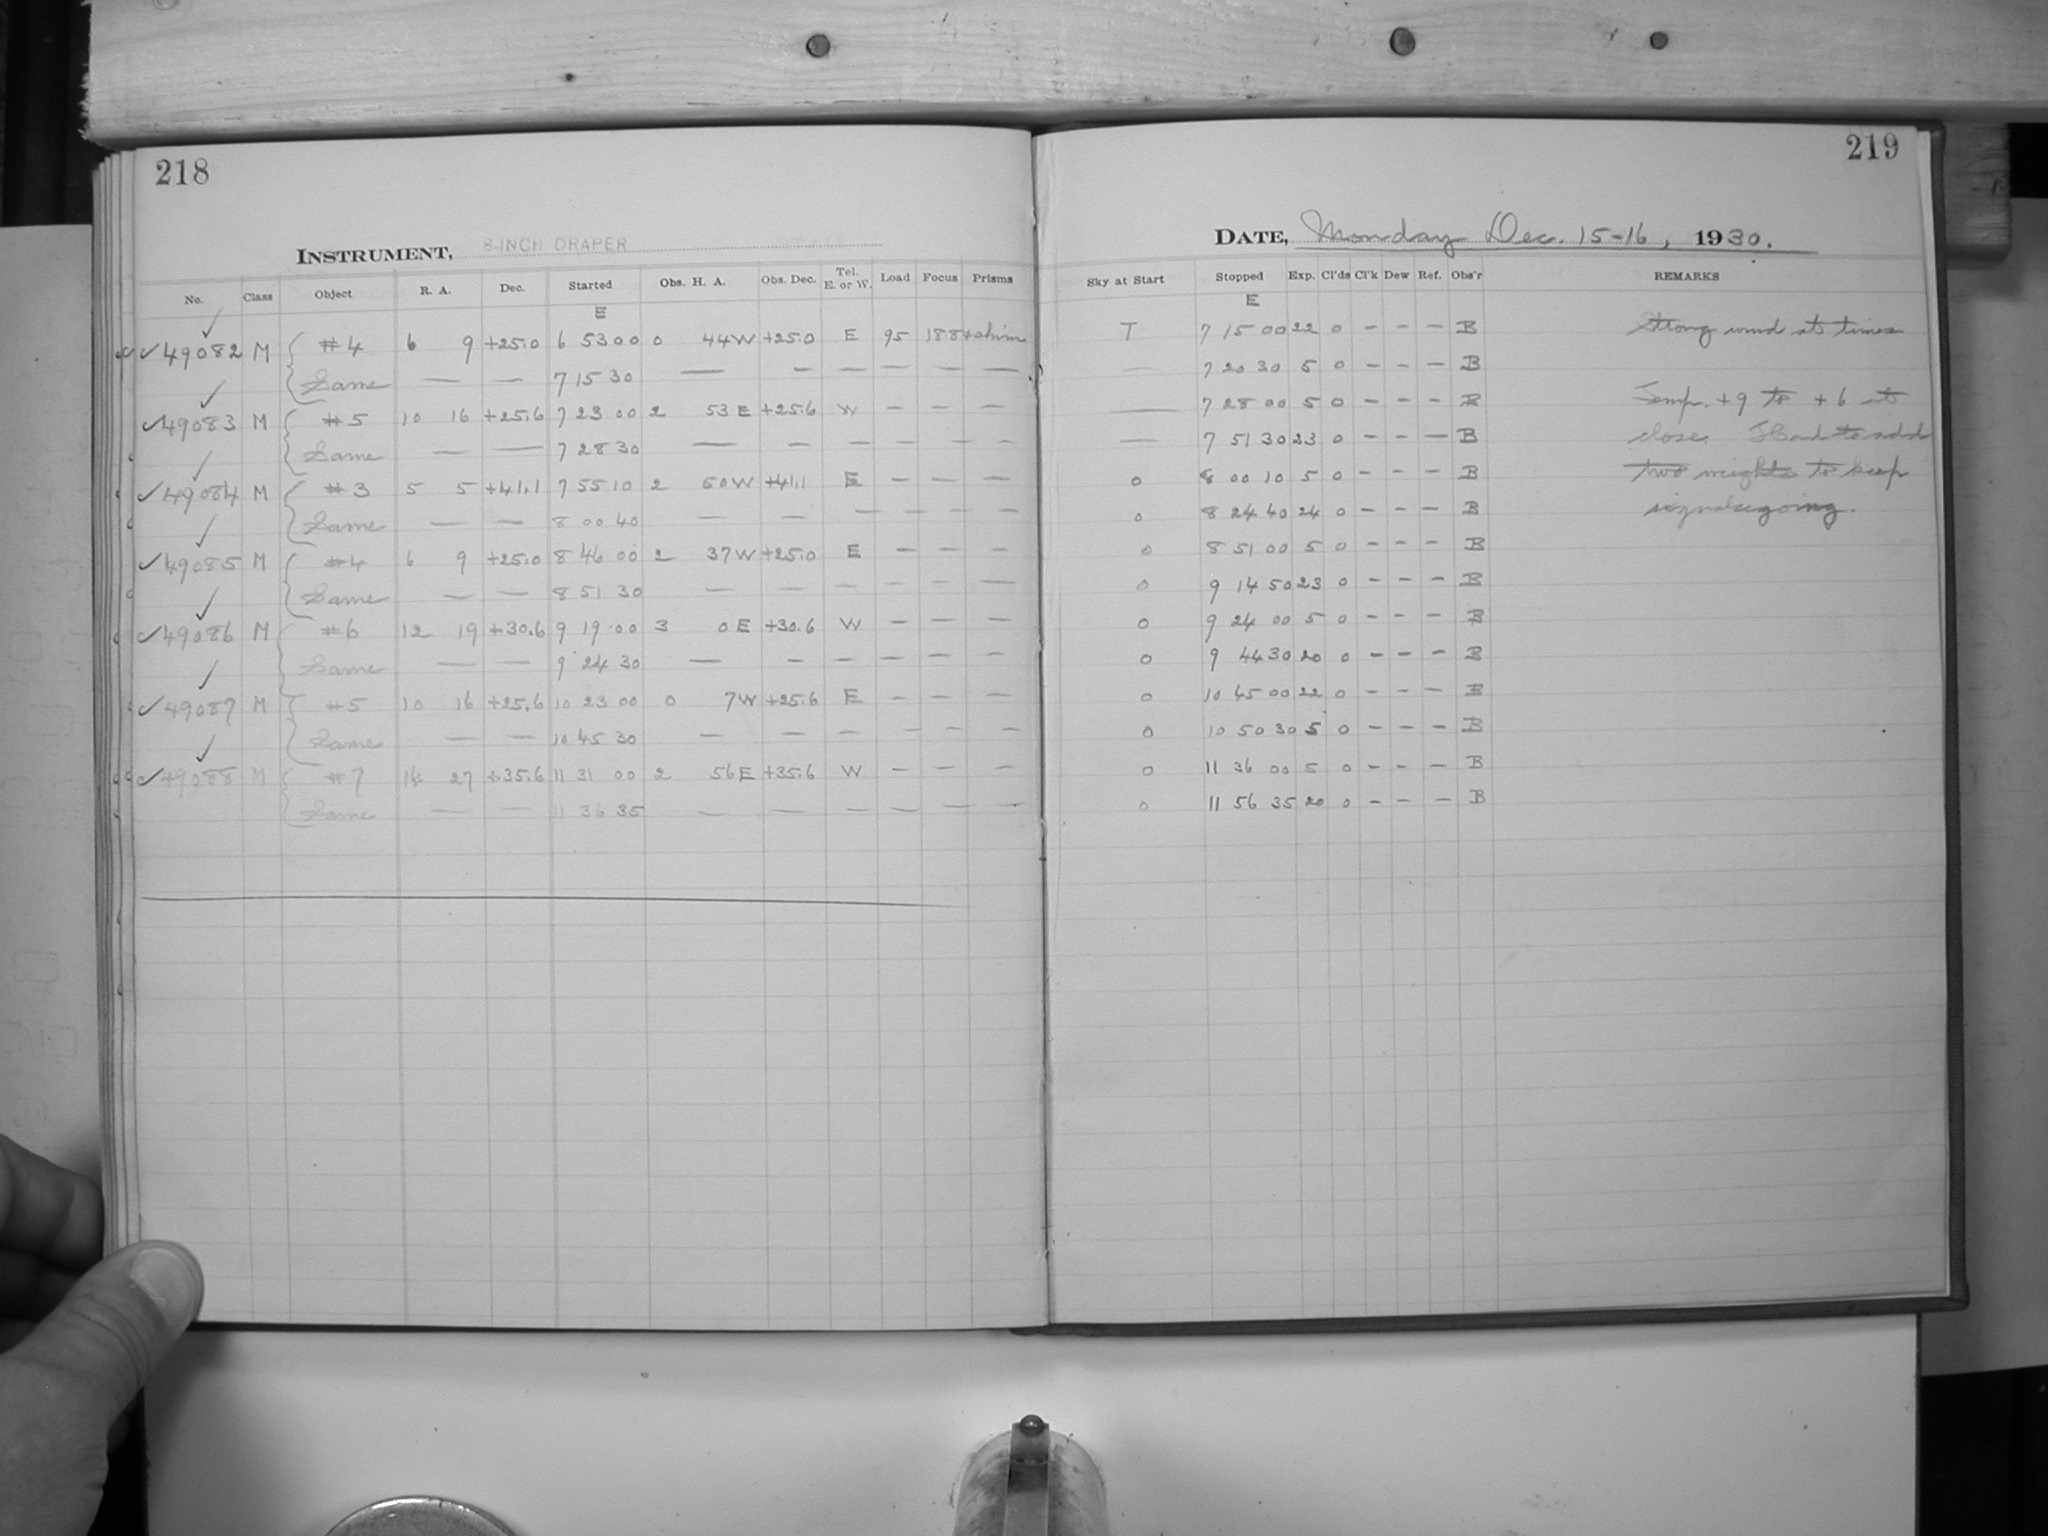 218
INSTRUMENT, 8-INCH DRAPER
No. Class Object R. A. Dec. Started Obs. H. A. Obs. Dec. Tel. E. or W. Load Focus Prisms
E
✓49082 M #4 6 9 +25.0 6 53 00 0 44W +25.0 E 95
Same — — 7 15 30 — — — — — —
✓49083 M #5 10 16 +25.6 7 23 00 2 53 E +25.6 W — — —
Same — — 7 28 30 — — — — — —
✓49084 M #3 5 5 +41.1 7 55 10 2 50W +41.1 E — — —
Same — — 8 00 40 — — — — — —
✓49085 M #4 6 9 +25.0 8 46 00 2 37W +25.0 E — — —
Same — — 8 51 30 — — — — — —
✓49086 M #6 12 19 +30.6 9 19 00 3 0 E +30.6 W — — —
Same — — 9 24 30 — — — — — —
✓49087 M #5 10 16 +25.6 10 23 00 0 7W +25.6 E — — —
Same — — 10 45 30 — — — — — —
✓49088 M #7 14 27 +35.6 11 31 00 2 56E +35.6 W — — —
Same — — 11 36 35 — — — — — —
219
DATE, Monday Dec. 15-16, 1930.
Sky at Start Stopped Exp. Cl'ds Cl'k Dew Ref. Obs'r REMARKS
E
T 7 15 00 22 0 - - - B Strong wind at times
— 7 20 30 5 0 - - - B
— 7 28 00 5 0 - - - B Temp. +9 to +6 at
— 7 51 30 23 0 - - - B close. Had to add
0 8 00 10 5 0 - - - B two weights to keep
0 8 24 40 24 0 - - - B signals going.
0 8 51 00 5 0 - - - B
0 9 14 50 23 0 - - - B
0 9 24 00 5 0 - - - B
0 9 44 30 20 0 - - - B
0 10 45 00 22 0 - - - B
0 10 50 30 5 0 - - - B
0 11 36 00 5 0 - - - B
0 11 56 35 20 0 - - - B